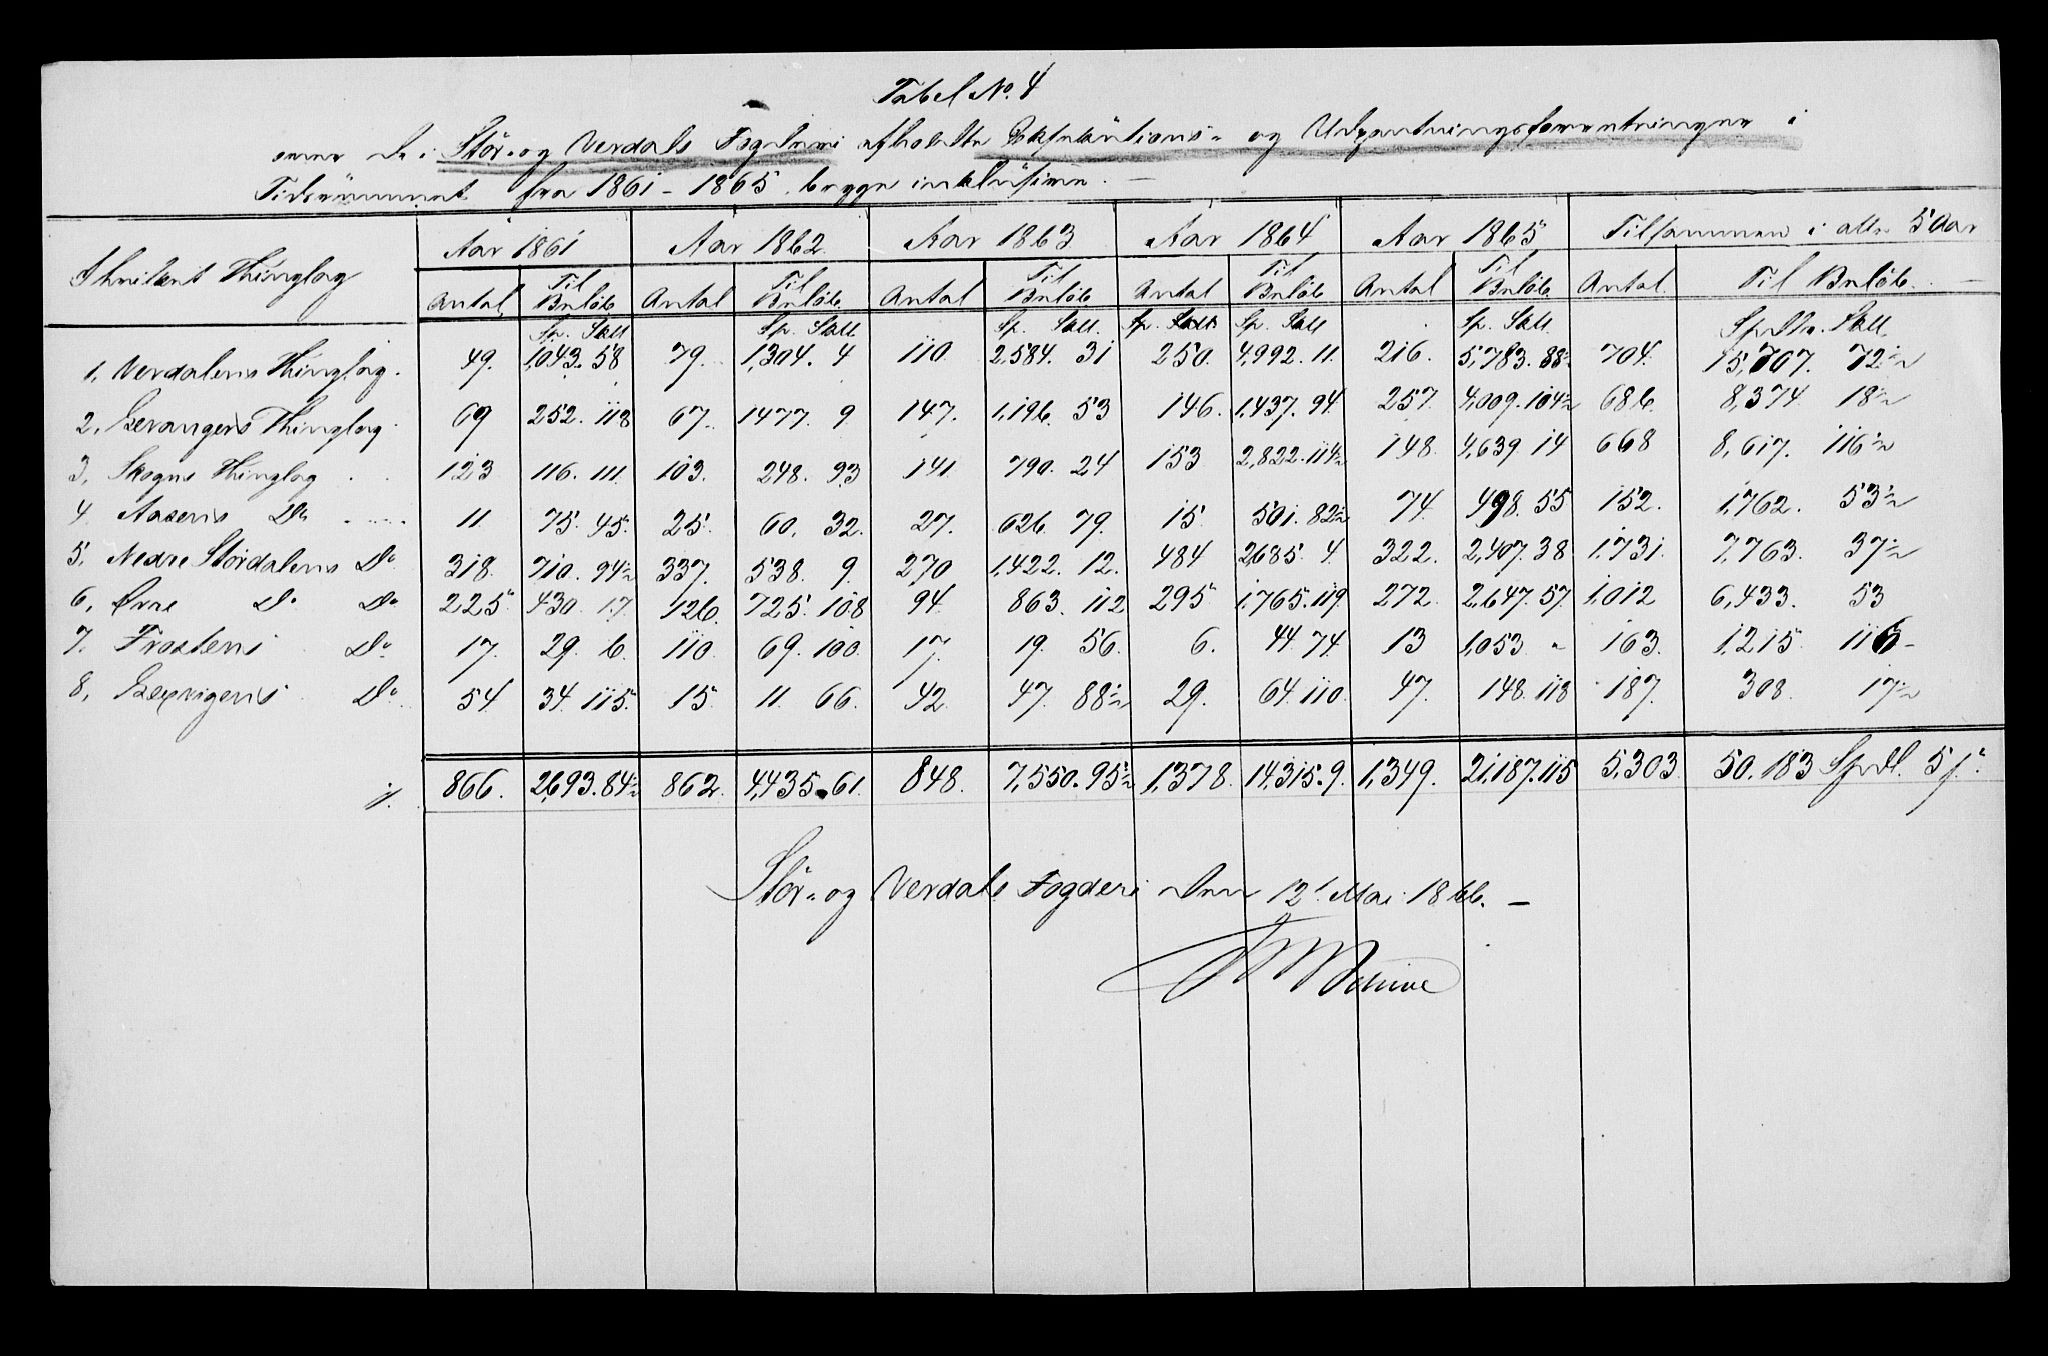 Tabel No. 4
over de i Stör- og Verdals Fogderi afholdte Exekutions- og Udpantningsforretninger i
Tidsrummet fra 1861 - 1865 begge inklusive. —
Skrevet Thinglag | Aar 1861 | Aar 1862 | Aar 1863 | Aar 1864 | Aar 1865 | Tilsammen i alle 5 Aar
Antal | Til Beløb | Antal | Til Beløb | Antal | Til Beløb | Antal | Til Beløb | Antal | Til Beløb | Antal | Til Beløb
Sp. Skll | Sp. Skll. | Sp. Skll. | Sp. Skll | Sp. Skll | Sp. Skll. | Spdlr. Skll
1. Verdalens Thinglag. | 49. | 1,043. 58 | 79. | 1,304. 4 | 110. | 2,584. 31 | 250. | 4,992. 11. | 216. | 5,783. 88½ | 704. | 15,707. 72½
2. Levangers Thinglag. | 69 | 252. 118 | 67. | 1477. 9 | 147. | 1,196. 53 | 146. | 1,437. 94. | 257. | 4,009. 104½ | 686. | 8,374. 18½
3. Skogns Thinglag . . | 123 | 116. 111. | 103. | 248. 93 | 141. | 790. 24 | 153 | 2,822. 114½ | 148. | 4,639. 14 | 668 | 8,617. 116½
4. Aasens Do | 11. | 75. 45. | 25. | 60. 32. | 27. | 626. 79. | 15. | 501. 82½ | 74. | 498. 55 | 152. | 1,762. 53½
5. Nedre Stördalens Do | 318. | 710. 94½ | 337. | 538. 9. | 270 | 1,422. 12. | 484 | 2,685. 4. | 322. | 2,407. 38 | 1,731. | 7,763. 37½
6. Øvre Do Do | 225. | 430. 17. | 126. | 725. 108 | 94. | 863. 112 | 295 | 1,765. 119. | 272. | 2,647. 57. | 1,012 | 6,433. 53
7. Frostens Do | 17. | 29. 6. | 110. | 69. 100. | 17. | 19. 56. | 6. | 44. 74. | 13 | 1,053 " | 163. | 1,215. 116 -
8. Lexvigens Do | 54. | 34. 115. | 15. | 11. 66. | 42. | 47. 88½ | 29. | 64. 110. | 47. | 148. 118 | 187. | 308. 17½
866. | 2,693. 84½ | 862. | 4,435. 61. | 848. | 7,550. 95½ | 1,378. | 14,315. 9. | 1,349. | 21,187. 115 | 5,303. | 50,183 Spdl. 5
Stör- og Verdals Fogderi den 12' Mai 1866. —